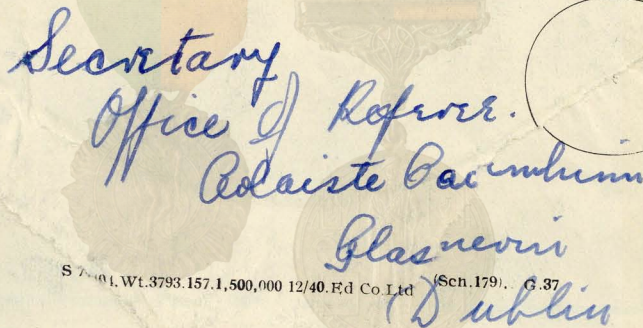 Secretary
Office of Referee.
Colaiste Caoimhin
Glasnevin
S 7101.Wt.3793.157.1,500,000 12/40.Ed Co.Ltd (Sch.179). G.37
Dublin